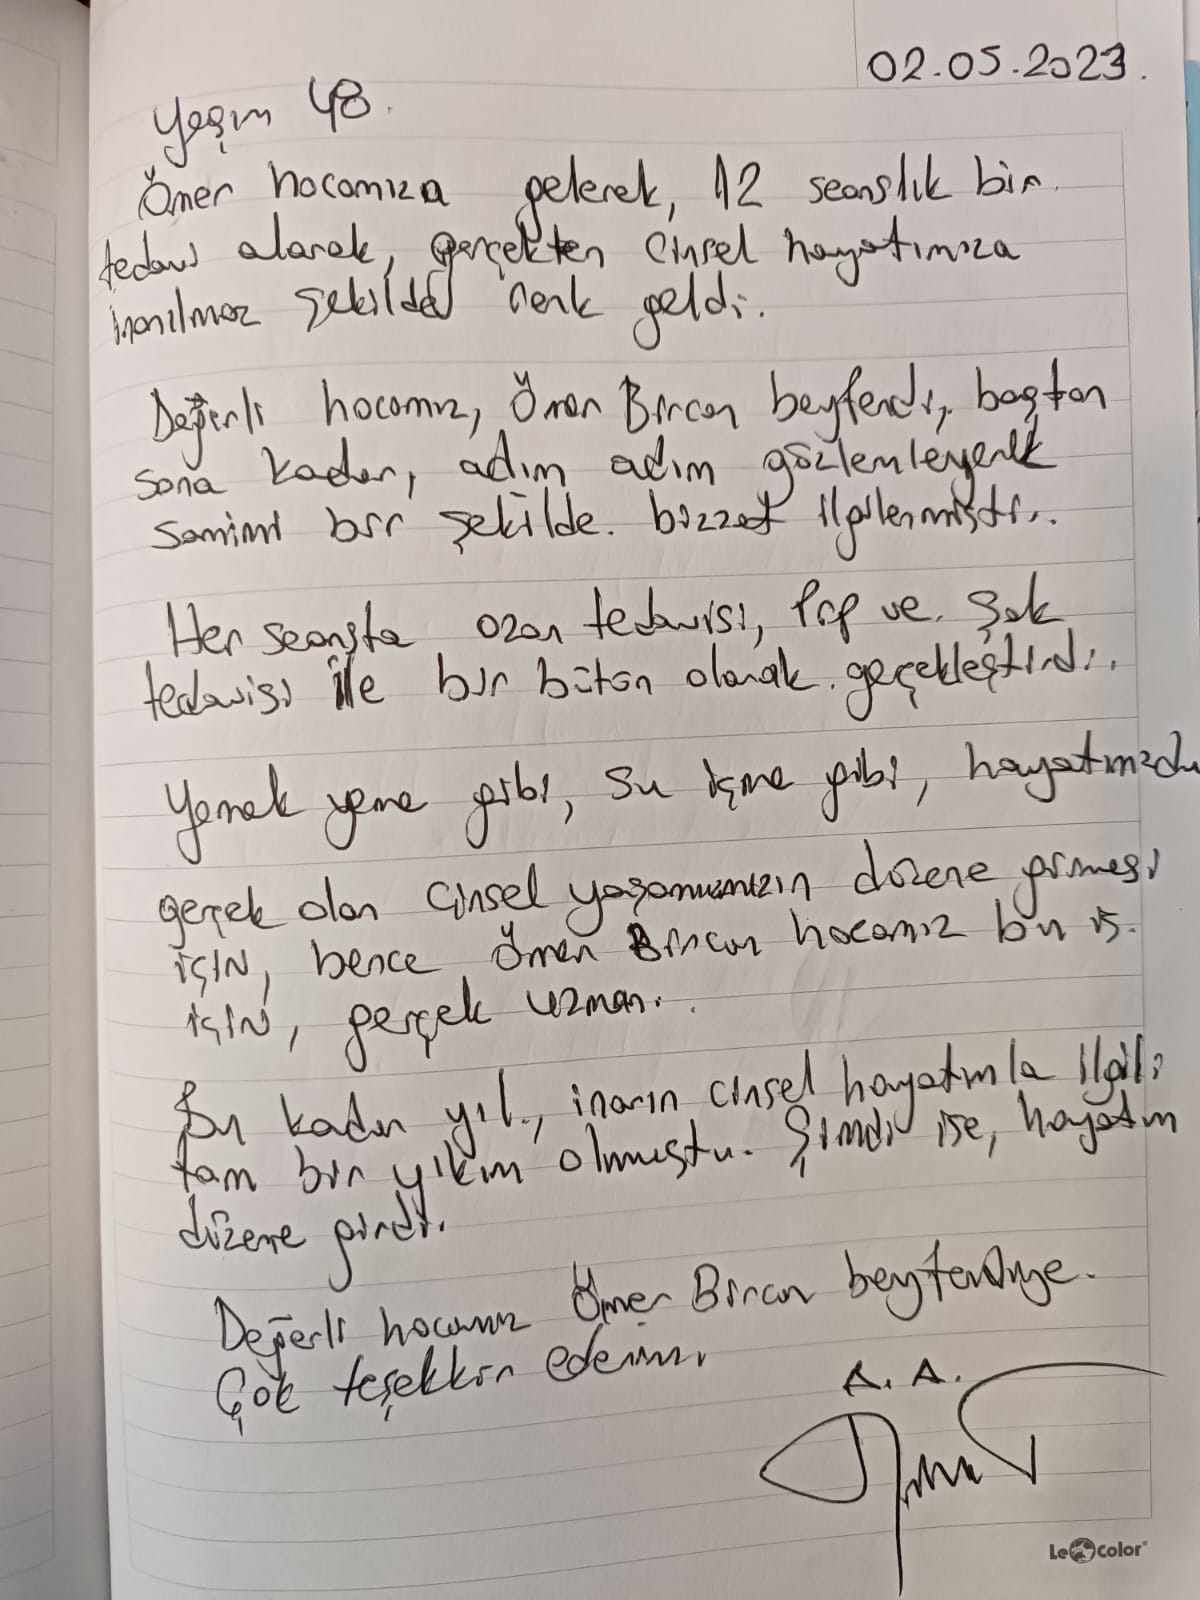 02.05.2023.
Yaşım 48.
Ömer hocamıza gelerek, 12 seanslık bir
tedavi alarak, gerçekten cinsel hayatımıza
inanılmaz şekilde renk geldi.
Değerli hocamız, Ömer Bircan beyfendi, baştan
sona kadar, adım adım gözlemleyerek
samimi bir şekilde. bizzat ilgilenmişti.
Her seansta ozon tedavisi, Prp ve. Şok
tedavisi ile bir bütün olarak. gerçekleştirdi.
Yemek yeme gibi, su içme gibi, hayatımızda
gerçek olan cinsel yaşamımızın düzene girmesi
için, bence Ömer Bircan hocamız bu iş.
için, gerçek uzman.
Bu kadar yıl, inanın cinsel hayatımla ilgili
tam bir yıkım olmuştu. Şimdi ise, hayatım
düzene girdi.
Değerli hocamız Ömer Bircan beyfendiye.
Çok teşekkür ederim.
A. A.
LeColor